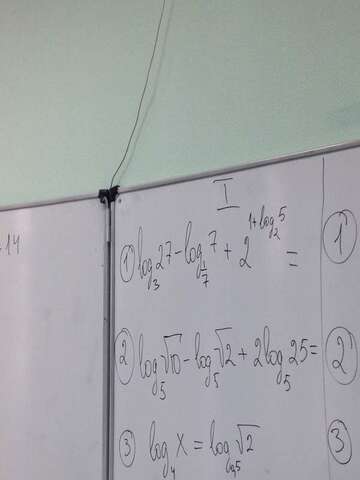 14
I
① log₃27 - log_{1/7}7 + 2^{1+log₂5} =
①
② log₅√10 - log₅√2 + 2log₅25 =
②
③ log₄x = log_{0,5}√2
③